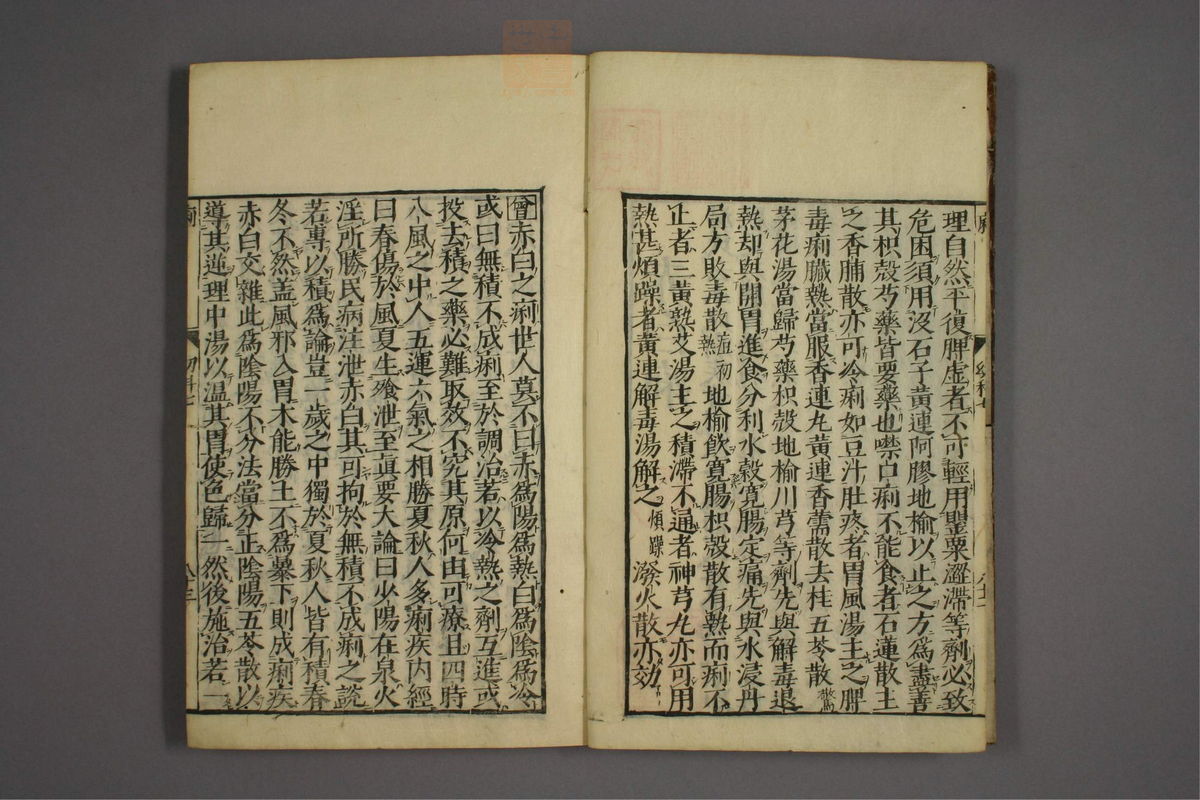 理自然平復脾虛者不可輕用罌粟澀滯等劑必致
危困須用沒石子黃連阿膠地榆以止之方爲盡善
其枳殼芍藥皆要藥也噤口痢不能食者石蓮散主
之香脯散亦可冷痢如豆汁肚疼者胃風湯主之脾
毒痢臟熱當服香連丸黃連香薷散去桂五苓散驚
茅花湯當歸芍藥枳殼地榆川芎等劑先與解毒退
熱却與開胃進食分利水穀寬腸定痛先與水浸丹
局方敗毒散痘初熱地榆飲寬腸枳殼散有熱而痢不
止者三黃熟艾湯主之積滯不通者神芎丸亦可用
熱甚煩躁者黃連解毒湯解之煩躁潑火散亦効
曾赤白之痢世人莫不曰赤爲陽爲熱白爲陰爲冷
或曰無積不成痢至於調治若以冷熱之劑互進或
投去積之藥必難取效不究其原何由可療且四時
八風之中人五運六氣之相勝夏秋人多痢疾内經
曰春傷於風夏生飱泄至眞要大論曰少陽在泉火
淫所勝民病注泄赤白其可拘於無積不成痢之說
若專以積爲論豈一歲之中獨於夏秋人皆有積春
冬不然盖風邪入胃木能勝土不爲暴下則成痢疾
赤白交雜此爲陰陽不分法當分正陰陽五苓散以
導其逆理中湯以温其胃使色歸一然後施治若一